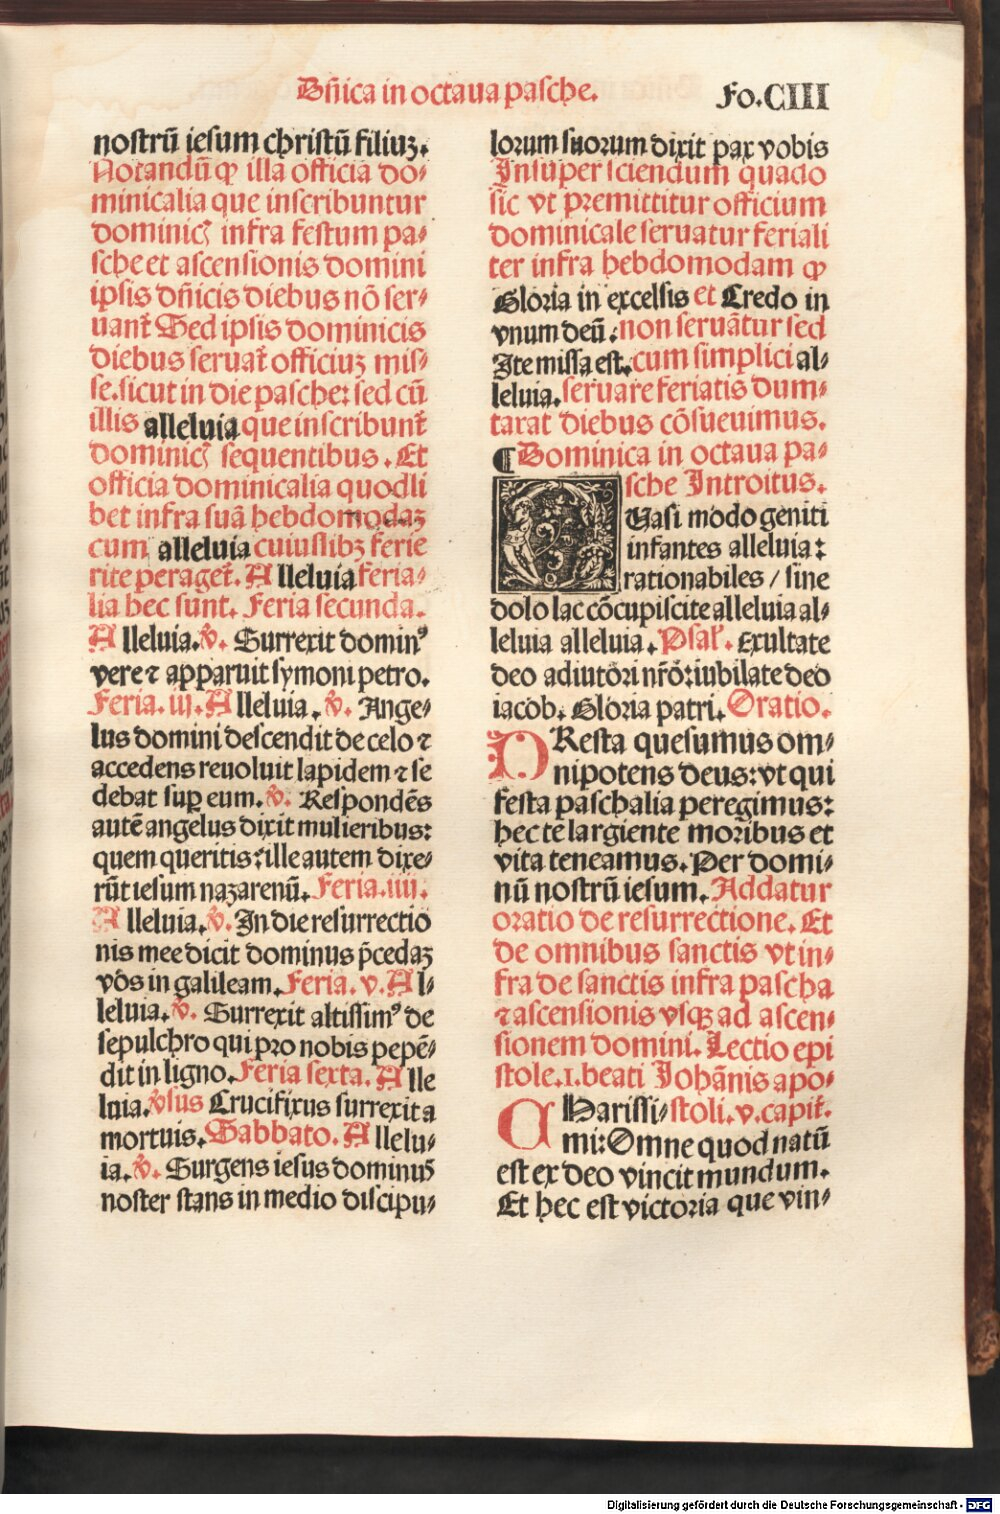 Dñica in octaua pasche.
Fo.CIII
nostrũ iesum christũ filiuꝫ.
Notandũ ꝙ illa officia do⸗
minicalia que inscribuntur
dominicꝭ infra festum pa⸗
sche et ascensionis domini
ipsis dñicis diebus nõ ser⸗
uant̃ Sed ipsis dominicis
diebus seruat̃ officiuꝫ mis⸗
se.sicut in die pasche: sed cũ
illis alleluia que inscribunt̃
dominicꝭ sequentibus. Et
officia dominicalia quodli
bet infra suã hebdomodaꝫ
cum alleluia cuiuslibꝫ ferie
rite peraget̃. Alleluia feria⸗
lia hec sunt. Feria secunda.
Alleluia. ℣. Surrexit dominꝰ
vere ⁊ apparuit symoni petro.
Feria. iij. Alleluia. ℣. Ange⸗
lus domini descendit de celo ⁊
accedens reuoluit lapidem ⁊ se
debat suꝑ eum. ℣. Respondẽs
autẽ angelus dixit mulieribus:
quem queritis? ille autem dixe⸗
rũt iesum nazarenũ. Feria.iiij.
Alleluia. ℣. In die resurrectio
nis mee dicit dominus p̃cedaꝫ
vos in galileam. Feria. v. Al⸗
leluia. ℣. Surrexit altissimꝰ de
sepulchro qui pro nobis pepẽ⸗
dit in ligno. Feria sexta. Alle
luia. ℣sus Crucifixus surrexit a
mortuis. Sabbato. Allelu⸗
ia. ℣. Surgens iesus dominus
noster stans in medio discipu⸗
lorum suorum dixit pax vobis
Insuper sciendum quado
sic vt premittitur officium
dominicale seruatur feriali
ter infra hebdomodam ꝙ
Gloria in excelsis et Credo in
vnum deũ: non seruãtur sed
Ite missa est. cum simplici al⸗
leluia. seruare feriatis dum⸗
tarat diebus cõsueuimus.
¶ Dominica in octaua pa⸗
sche Introitus.
QUasi modo geniti
infantes alleluia:
rationabiles / sine
dolo lac cõcupiscite alleluia al⸗
leluia alleluia. Psal̃. Exultate
deo adiutori nr̃o: iubilate deo
iacob. Gloria patri. Oratio.
PResta quesumus om⸗
nipotens deus: vt qui
festa paschalia peregimus:
hec te largiente moribus et
vita teneamus. Per domi⸗
nũ nostrũ iesum. Addatur
oratio de resurrectione. Et
de omnibus sanctis vt in⸗
fra de sanctis infra pascha
⁊ ascensionis vsqꝫ ad ascen⸗
sionem domini. Lectio epi
stole.1.beati Johãnis apo⸗
CHarissi⸗stoli. v. capit̃.
mi: Omne quod natũ
est ex deo vincit mundum.
Et hec est victoria que vin⸗
Digitalisierung gefördert durch die Deutsche Forschungsgemeinschaft - DFG